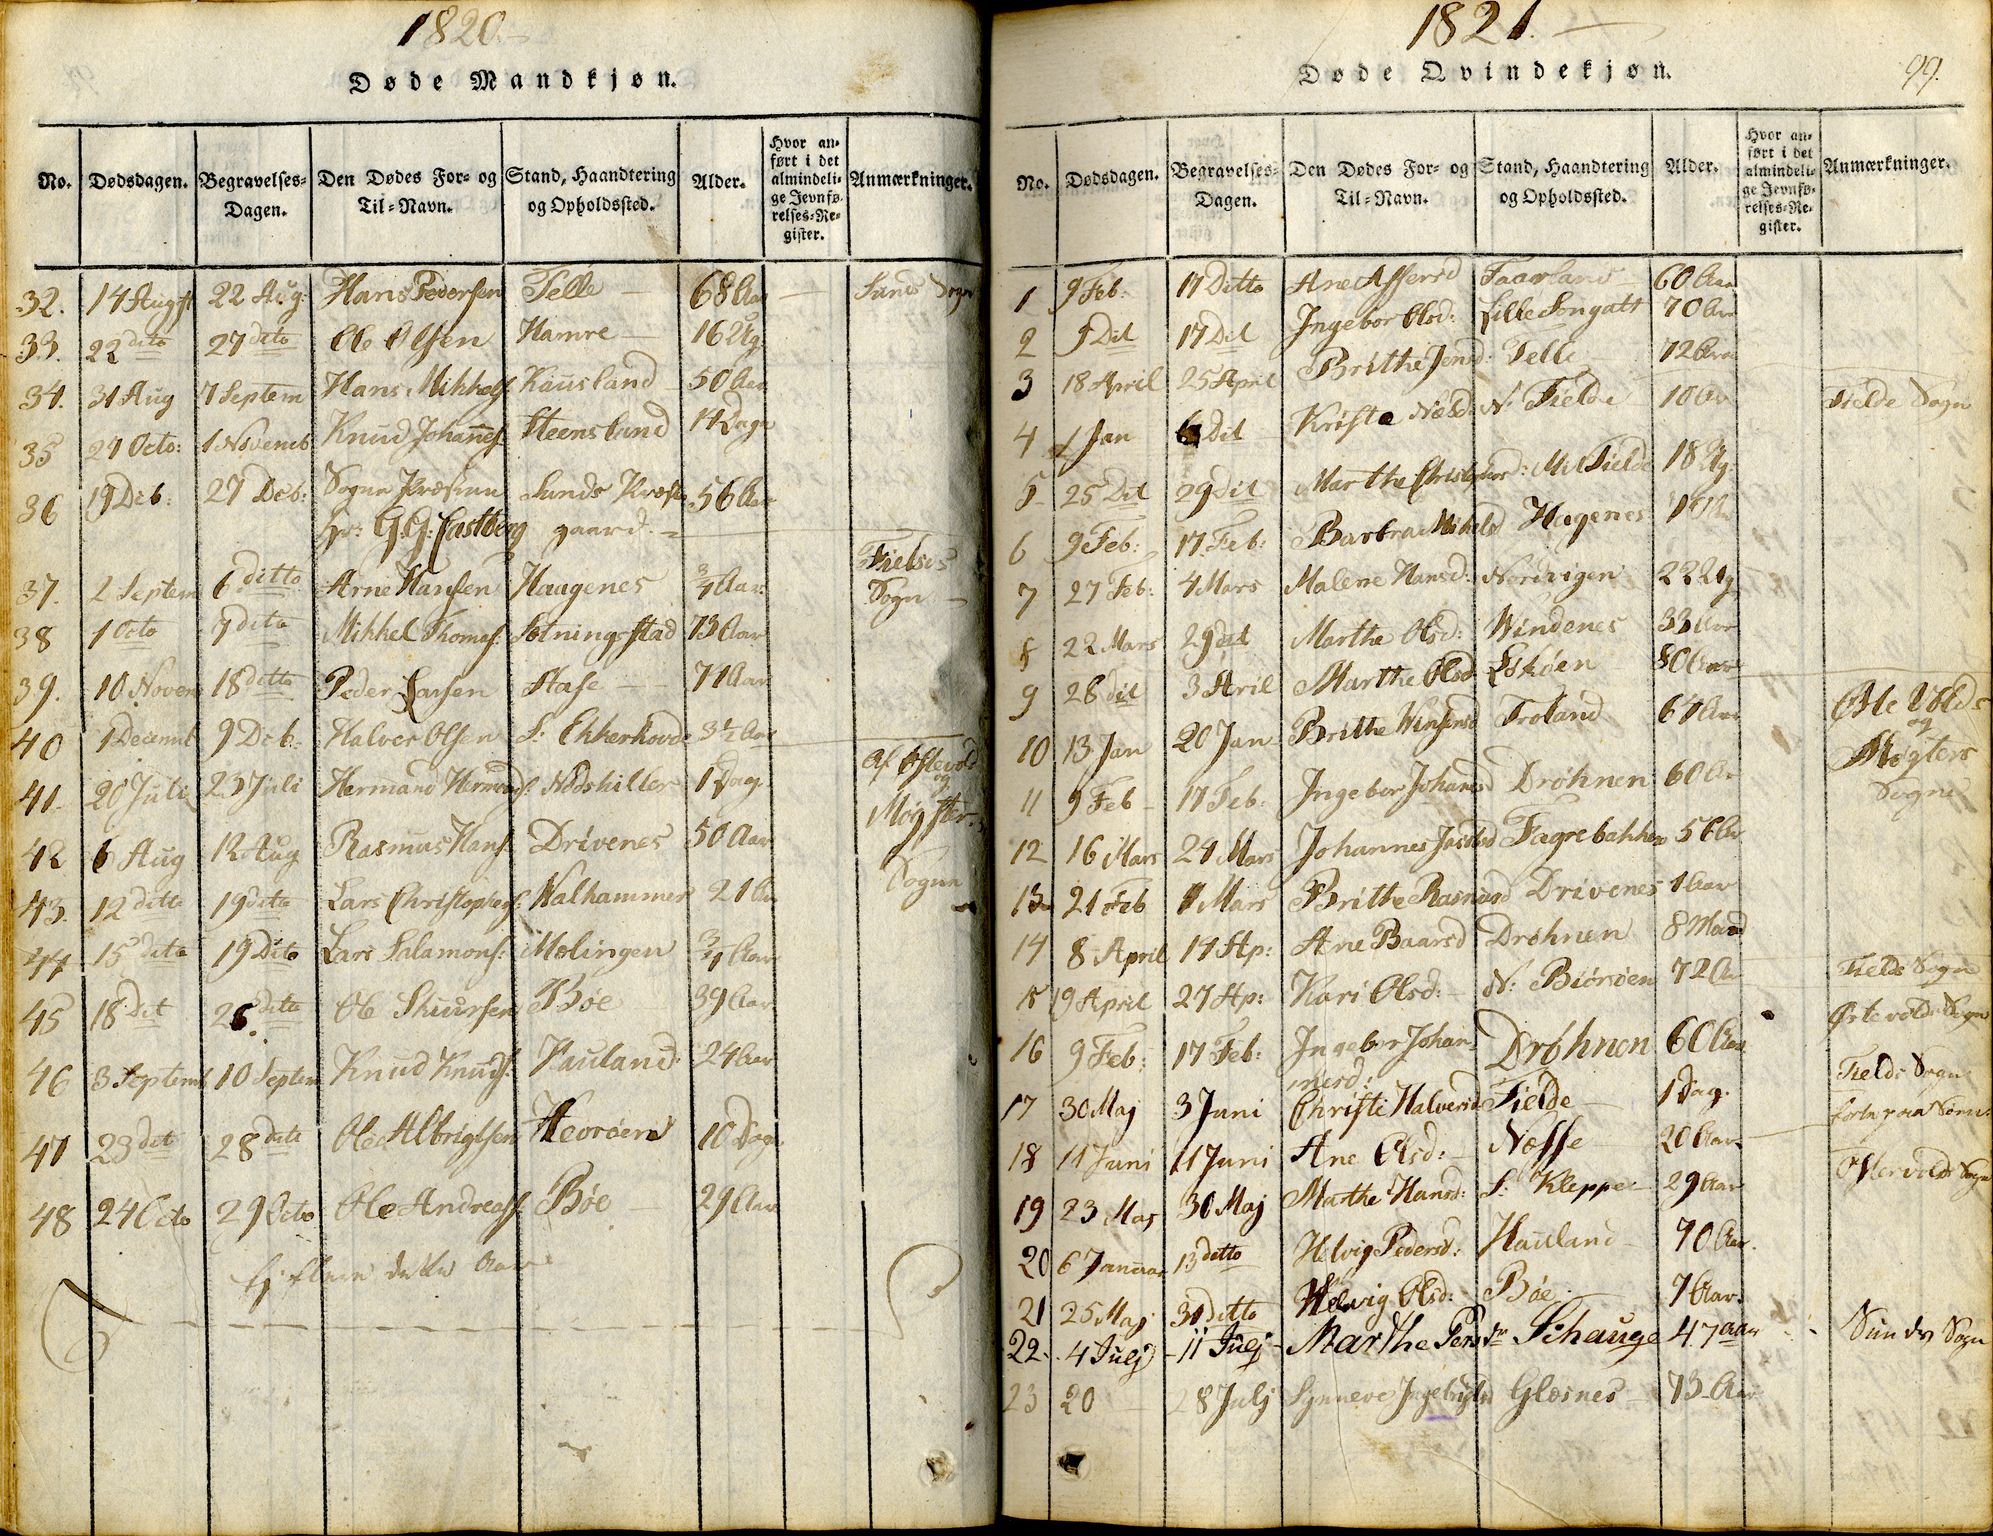 1820.
Døde Mandkjøn.
No. Dødsdagen. Begravelses-Dagen. Den Dødes For- og Til-Navn. Stand, Haandtering og Opholdssted. Alder. Hvor anført i det almindelige Jevnførelses-Register. Anmærkninger.
32. 14 Augst 22 Aug: Hans Pedersen Telle 68 Aar Sunds Sogn
33. 22 dito 27 dito Ole Olsen Hamre 16 Ug.
34. 31 Aug 7 Septem Hans Mikkels. Kausland 50 Aar
35 27 Octo: 1 Novemb Knud Johannes. Steensland 14 Dage
36 19 Deb: 27 Deb: Sogne Præsten Sunds Præste 56 Aar
Hr: G.G: Castberg gaard.
37. 2 Septem 6 ditto Arne Hansen Haagenes 3/4 Aar. Fields Sogn
38 1 Octo 7 dito Mikkel Thomas. Sotningsstad 73 Aar
39. 10 Novem 18 ditto Peder Larsen Stase 71 Aar
40 1 Decemb 9 Deb: Halver Olsen S: Ekkerhovde 3½ Aar
41. 20 Juli 23 Juli Hermand Hermand. 1 Dag. Af Østevold
og
Møgster
Sogne
42 6 Aug 12 Aug Rasmus Hans. Drivenes 50 Aar
43. 12 ditto 19 dito Lars Christophers. Walhammer 21 Aar
44 15 dito 19 Dito Lars Salamons: Mølingen 3/4 Aar
45 18 Dit 26 ditto Ole Skuursen Bøe 39 Aar
46 3 Septemb 10 Septem Knud Knuds. Hauland 24 Aar
47 23 dit 28 dito Ole Albrigtsen Heorøen 10 Dage
48 24 Octo 29 Octo Ole Andreass. Bøe 29 Aar
Ej flere dette Aar
1821.
99.
Døde Qvindekjøn.
No. Dødsdagen. Begravelses-Dagen. Den Dødes For- og Til-Navn. Stand, Haandtering og Opholdssted. Alder. Hvor anført i det almindelige Jevnførelses-Register. Anmærkninger.
1 9 Feb: 17 Ditto Ane Assersd Taarland 60 Aar
2 9 Dit 17 Dit Ingebor Olsd: Lille Songatt 70 Aar
3 18 April 25 April Brithe Jensd: Telle 72 Aar
4 1 Jan 6 Dit Kriste Nelsd: N: Fielde 10 Ar Fielde Sogn
5 25 Dit 29 dit Marthe Christophersd: Mit Fielde 18 Ug:
6 9 Feb: 17 Feb: Barbra Mikelsd Hagenes
7 27 Feb: 4 Mars Malene Hansd: Nordvigen 22 Ug
8 22 Mars 29 dit Marthe Olsd: Windenes 33 Aar
9 28 dit 3 Aril Marthe Olsd Eskøen 80 Aar
10 13 Jan 20 Jan Brithe Winsensd Troland 64 Aar Øste Volds
og
Møgsters
Sogne
11 9 Feb 17 Feb: Ingebor Johannesd Drøhnen 60 Ar
12 16 Mars 24 Mars Johannes Fagrebakken 56 Ar
13 21 Feb 1 Mars Brithe Rasmusd Drivenes 1 Aar
14 8 April 14 Ap: Ane Baarsd Drøhnen 8 Maaned
15 19 April 27 Ap: Kari Olsd: N: Biørøen 72 Ar Fields Sogn
16 9 Feb: 17 Feb: Ingebor Johan- Drøhnen 60 Aar Østevolds Sogn
nesd:
17 30 Maj 3 Juni Christi Halversd Fielde 1 Dag. Fields Sogn
18 11 Juni 11 Juni Ane Olsd: Nesse 20 Aar
19 23 Maj 30 Maj Marthe Hansd: S: Kleppe 29 Aar Østervolds Sogn
20 6 Januar 13 ditto Helvig Pedersd: Hauland 70 Aar.
21 25 Maj 30 ditto Helvig Olsd: Bøe 7 Aar.
22. 4 Julj 11 Julj Marthe Persdr Schauge 47 aar Sunds Sogn
23 20 28 Julj Synneve Ingebrigtsd Glesnes 73 Aar